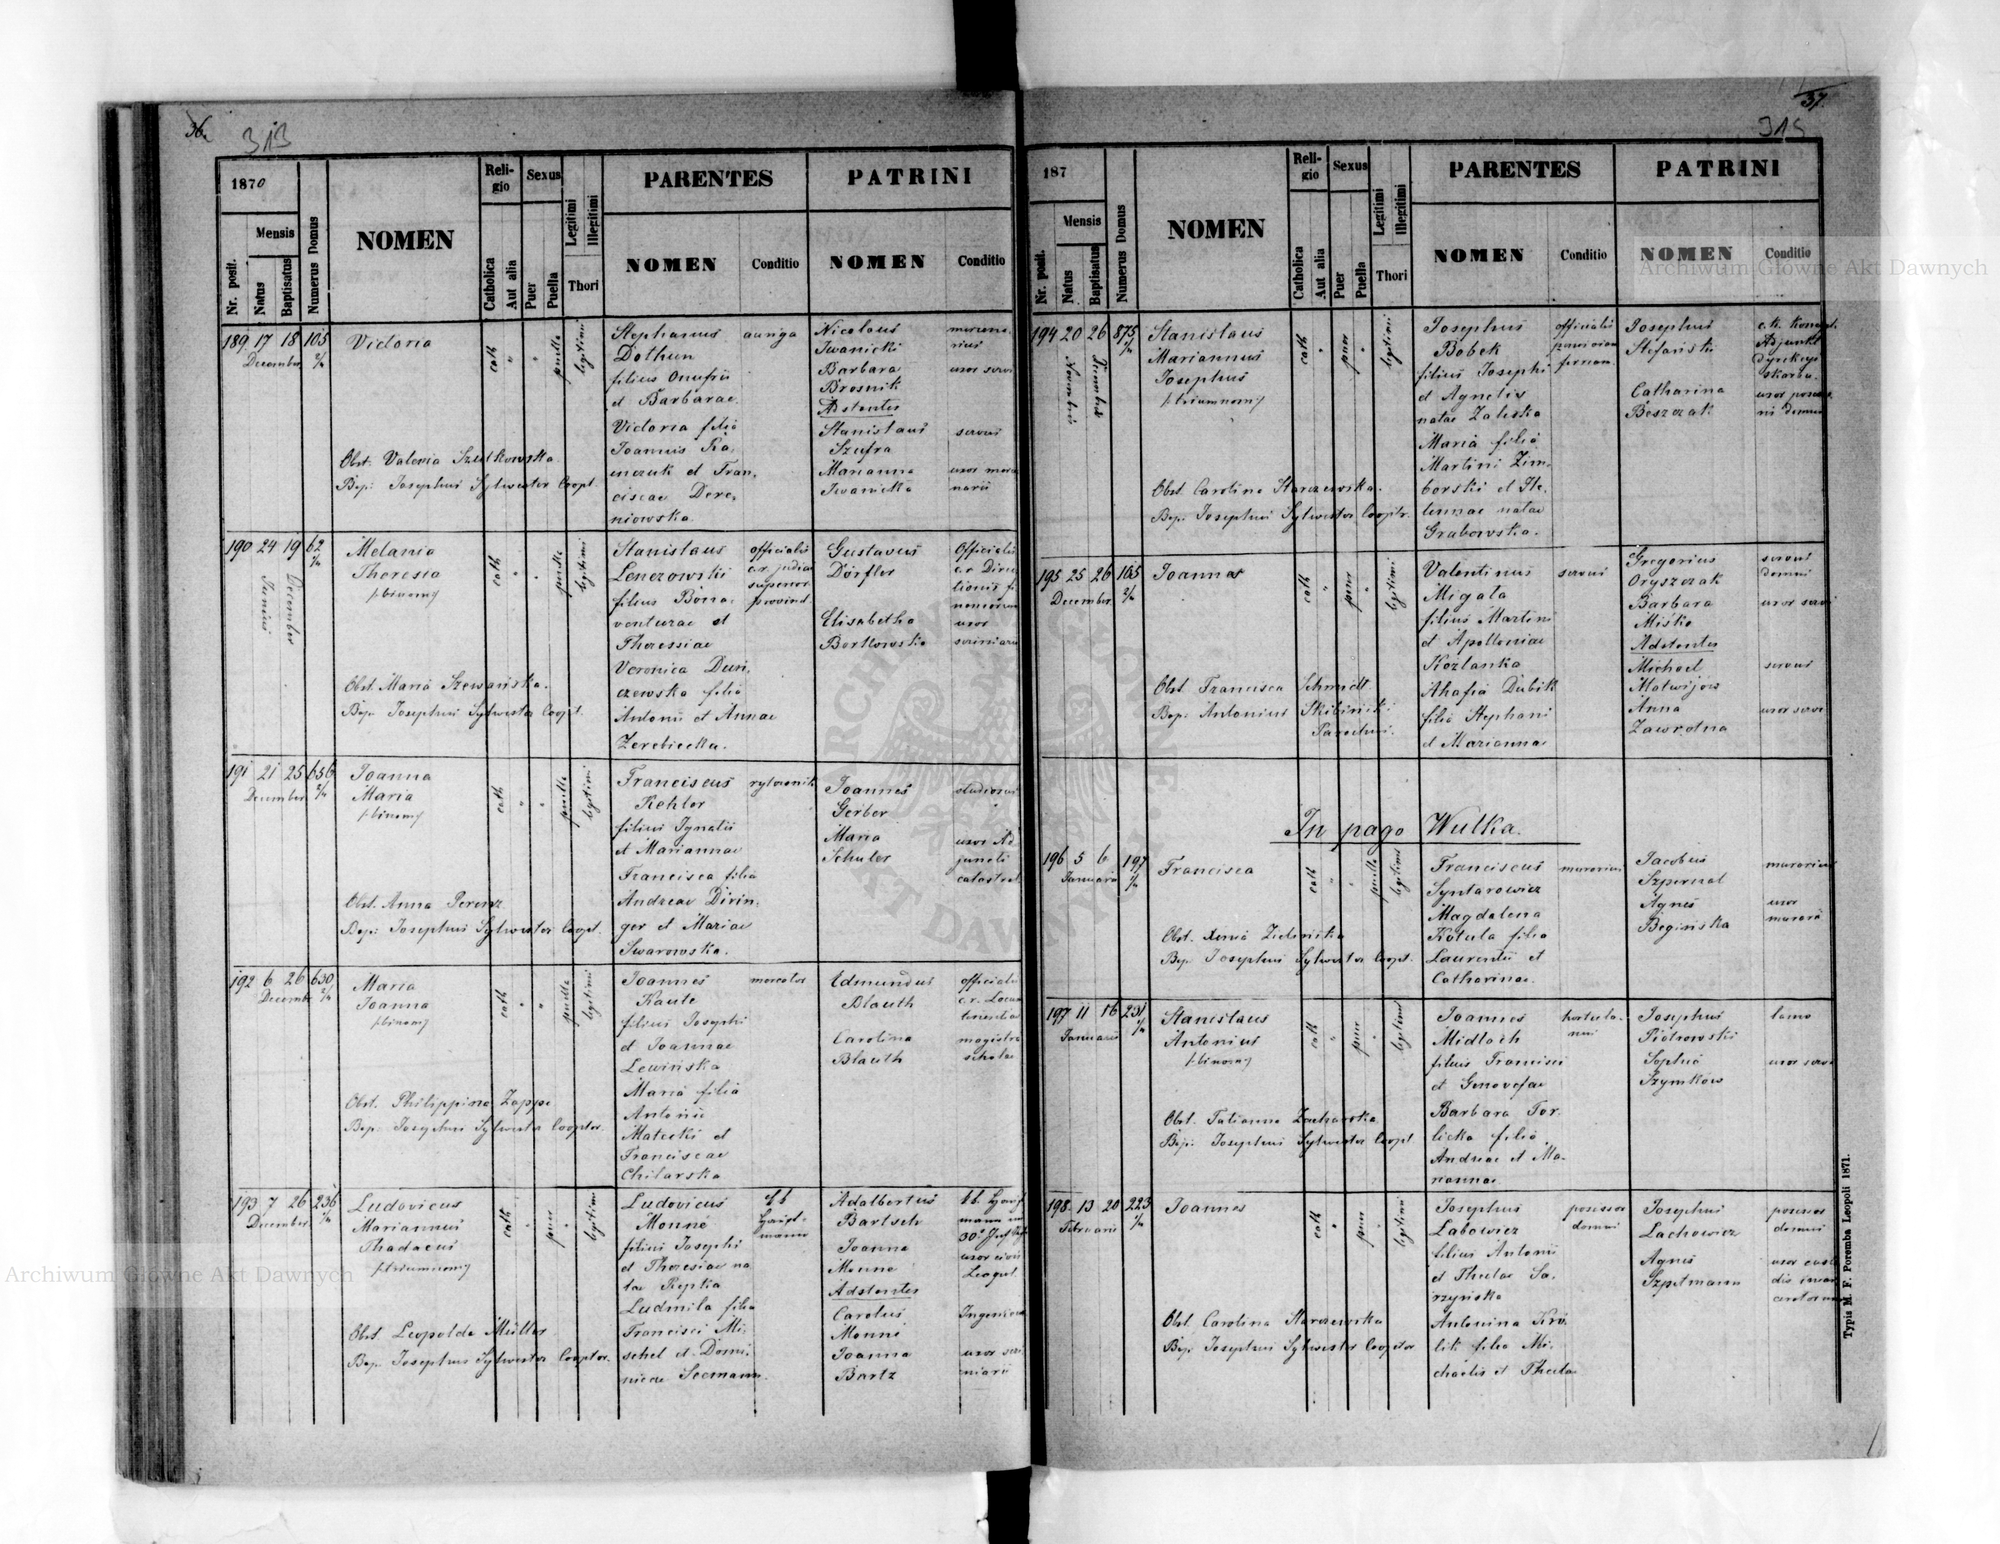 36.
313
1870
Nr. posit.
Mensis
Natus
Baptisatus
Numerus Domus
NOMEN
Religio
Catholica
Aut alia
Sexus
Puer
Puella
Legitimi
Illegitimi
Thori
PARENTES
NOMEN
Conditio
PATRINI
NOMEN
Conditio
189 17 18 105 2/4
December
Victoria
Obst. Valeria Szutkowska
Bap: Josephus Sylwester Coopt.
cath " " puella legitimi
Stephanus
Dothun
filius Onufrii
et Barbarae.
Victoria filia
Joannis
et Fran,
ciscae Dere,
niowska.
auriga
Nicolaus
Iwanicki
Barbara
Brosnik
Adstantes
Stanislaus
Szufra
Marianna
Iwanicka
servus
190 24 19 62
Junius
December
Melania
Theresia
/:binom:/
Obst. Maria Szewańska.
Bap: Josephus Sylwester Coopt.
cath " " puella legitimi
Stanislaus
Lenczowski
filius Bona,
venturae et
Theressiae
Veronica Duni
czewska filia
Antonii et Annae
Zerebiecka.
officialis
c.r. judicii
superior.
provind.
Gustavus
Dörfler
Elisabetha
Bortkowska
Officialis
c.r. Direc
tionis fi
uxor
191 21 25 656 2/4
December
Joanna
Maria
/:binom:/
Obst. Anna Perenz
Bap: Josephus Sylwester Coopt.
cath " " puella legitimi
Franciscus
Kehler
filius Ignatii
et Mariannae
Francisca filia
Andreae Dirin,
ger et Mariae
Swarowska.
rytownik
Joannes
Gerber
Maria
Schuler
studiosus
uxor Ad
juncti
catastral
192 6 26 630 2/4
December
Maria
Joanna
/:binom:/
Obst. Philippina Zappe
Bap: Josephus Sylwester Cooptor.
cath " " puella legitimi
Joannes
Kaute
filius Josephi
et Joannae
Lewińska
Maria filia
Antonii
Matecki et
Franciscae
Chilarska
mercator
Edmundus
Blauth
Carolina
Blauth
officialis
c.r. Locum
tenentiae
magistra
scholae
193 7 26 236
December
Ludovicus
Mariannus
Thadaeus
/:triumnom:/
Obst. Leopolda Müller
Bap: Josephus Sylwester Cooptor.
cath " puer " legitimi
Ludovicus
Monne
filius Josephi
et Theresiae na
tae Repka
Ludmila filia
Francisci Mi,
schel et Domi
nicae Seemann.
Haupt,
mann
Adalbertus
Bartsch
Joanna
Monne
Adstantes
Carolus
Monne
Joanna
Bartz
kk. Haupt
mann im
uxor civis
Leopol.
37.
315
187
Nr. posit.
Mensis
Natus
Baptisatus
Numerus Domus
NOMEN
Religio
Catholica
Aut alia
Sexus
Puer
Puella
Legitimi
Illegitimi
Thori
PARENTES
NOMEN
Conditio
PATRINI
NOMEN
Conditio
194 20 26 875
Novembris
Decembris
Stanislaus
Mariannus
Josephus
/:triumnom:/
Obst. Carolina Starczewska.
Bap. Josephus Sylwester Cooptr.
cath " puer " legitimi
Josephus
Bobek
filius Josephi
et Agnetis
natae Zaleska
Maria filia
Martini Zim,
borski et He,
lennae natae
Grabowska.
officialis
Josephus
Stefański
Catharina
Beszczak
c.k. Koncept.
Adjunkt
Dyrekcyi
skarbu.
195 25 26 165 2/4
December
Joannes
Obst. Francisca Schmidt.
Bap: Antonius Skibiński
Parochus.
cath " puer " legitimi
Valentinus
Migala
filius Martini
et Apolloniae
Kozlanka
Ahafia Dubik
filia Stephani
et Mariannae
servus
Gregorius
Oryszczak
Barbara
Miśko
Adstantes
Michael
Matwijów
Anna
Zawrotna
servus
domus
uxor servi
servus
uxor servi
In pago Wulka.
196 5 6 197
Januarii
Francisca
Obst. Xenia Zielinska
Bap. Josephus Sylwester Coopt.
cath " " puella legitimi
Franciscus
Syntarowicz
Magdalena
Kotula filia
Laurentii et
Catharinae.
murarius
Jacobus
Szpernal
Agnes
Begińska
murarius
uxor
murarii
197 11 16 231
Januarii
Stanislaus
Antonius
/:binom:/
Obst. Tatianna Zacharska
Bap: Josephus Sylwester Coopt.
cath " puer " legitimi
Joannes
Midlach
filius Francisci
et Genovefae
Barbara Tor,
licka filia
Andreae et Ma,
riannae
hortula,
nus
Josephus
Piotrowski
Sophia
Szymków
uxor servi
198. 13 20 223
Februarii
Joannes
Obst. Carolina Starczewska
Bap. Josephus Sylwester Cooptor
cath " puer " legitimi
Josephus
Labowicz
filius Antonii
et Theclae Sa,
rzyńska
Antonina Kró,
lik filia Mi,
chaelis et Theclae
possessor
domus
Josephus
Lachowicz
Agnes
Szpetmann
possessor
domus
Typis M. F. Poremba Leopoli 1871.
Archiwum Główne Akt Dawnych
Archiwum Główne Akt Dawnych
ARCHIWUM GŁÓWNE AKT DAWNYCH